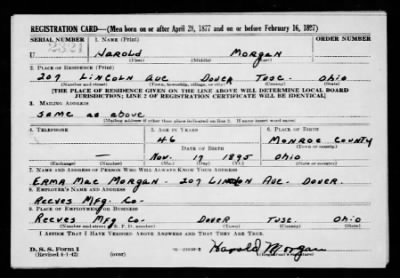 REGISTRATION CARD—(Men born on or after April 28, 1877 and on or before February 16, 1897)
SERIAL NUMBER 1. NAME (Print) ORDER NUMBER
U 2321 HAROLD MORGAN
(First) (Middle) (Last)
2. PLACE OF RESIDENCE (Print)
207 LINCOLN AVE DOVER TUSC. OHIO
(Number and street) (Town, township, village, or city) (County) (State)
[THE PLACE OF RESIDENCE GIVEN ON THE LINE ABOVE WILL DETERMINE LOCAL BOARD
JURISDICTION; LINE 2 OF REGISTRATION CERTIFICATE WILL BE IDENTICAL]
3. MAILING ADDRESS
SAME AS ABOVE
(Mailing address if other than place indicated on line 2. If same insert word same)
4. TELEPHONE 5. AGE IN YEARS 6. PLACE OF BIRTH
46 MONROE COUNTY
DATE OF BIRTH (Town or county)
— NOV. 17 1895 OHIO
(Exchange) (Number) (Mo.) (Day) (Yr.) (State or country)
7. NAME AND ADDRESS OF PERSON WHO WILL ALWAYS KNOW YOUR ADDRESS
ERMA MAE MORGAN - 207 LINCOLN AVE - DOVER.
8. EMPLOYER'S NAME AND ADDRESS
REEVES MFG. CO-
9. PLACE OF EMPLOYMENT OR BUSINESS
REEVES MFG CO- DOVER TUSC. OHIO
(Number and street or R. F. D. number) (Town) (County) (State)
I AFFIRM THAT I HAVE VERIFIED ABOVE ANSWERS AND THAT THEY ARE TRUE.
D. S. S. Form 1
(Revised 4-1-42) (over) Harold Morgan